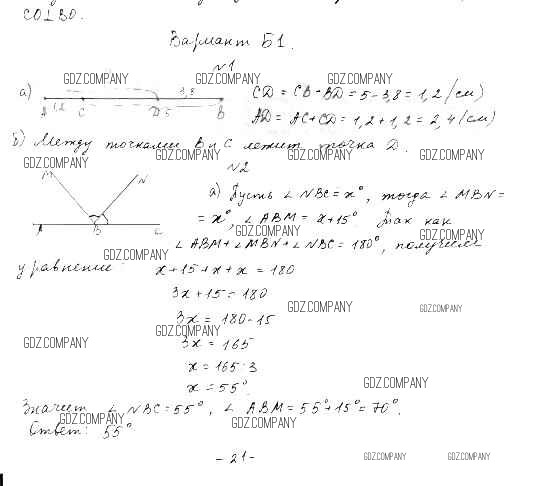 CO⊥BO.
Вариант Б1.
№1
а) A 1,2 C D 5 3,8 B CD = CB - BD = 5 - 3,8 = 1,2 (см)
AD = AC + CD = 1,2 + 1,2 = 2,4 (см)
б) Между точками B и C лежит точка D.
№2
M N
A B C
а) Пусть ∠NBC = x°, тогда ∠MBN =
= x°, ∠ABM = x+15°. Так как
∠ABM + ∠MBN + ∠NBC = 180°, получаем
уравнение: x+15+x+x = 180
3x+15 = 180
3x = 180-15
3x = 165
x = 165:3
x = 55°.
Значит ∠NBC = 55°, ∠ABM = 55°+15° = 70°.
Ответ: 55°
- 21 -
GDZ.COMPANY GDZ.COMPANY GDZ.COMPANY
GDZ.COMPANY GDZ.COMPANY GDZ.COMPANY GDZ.COMPANY
GDZ.COMPANY GDZ.COMPANY
GDZ.COMPANY
GDZ.COMPANY GDZ.COMPANY
GDZ.COMPANY
GDZ.COMPANY
GDZ.COMPANY
GDZ.COMPANY GDZ.COMPANY
GDZ.COMPANY GDZ.COMPANY